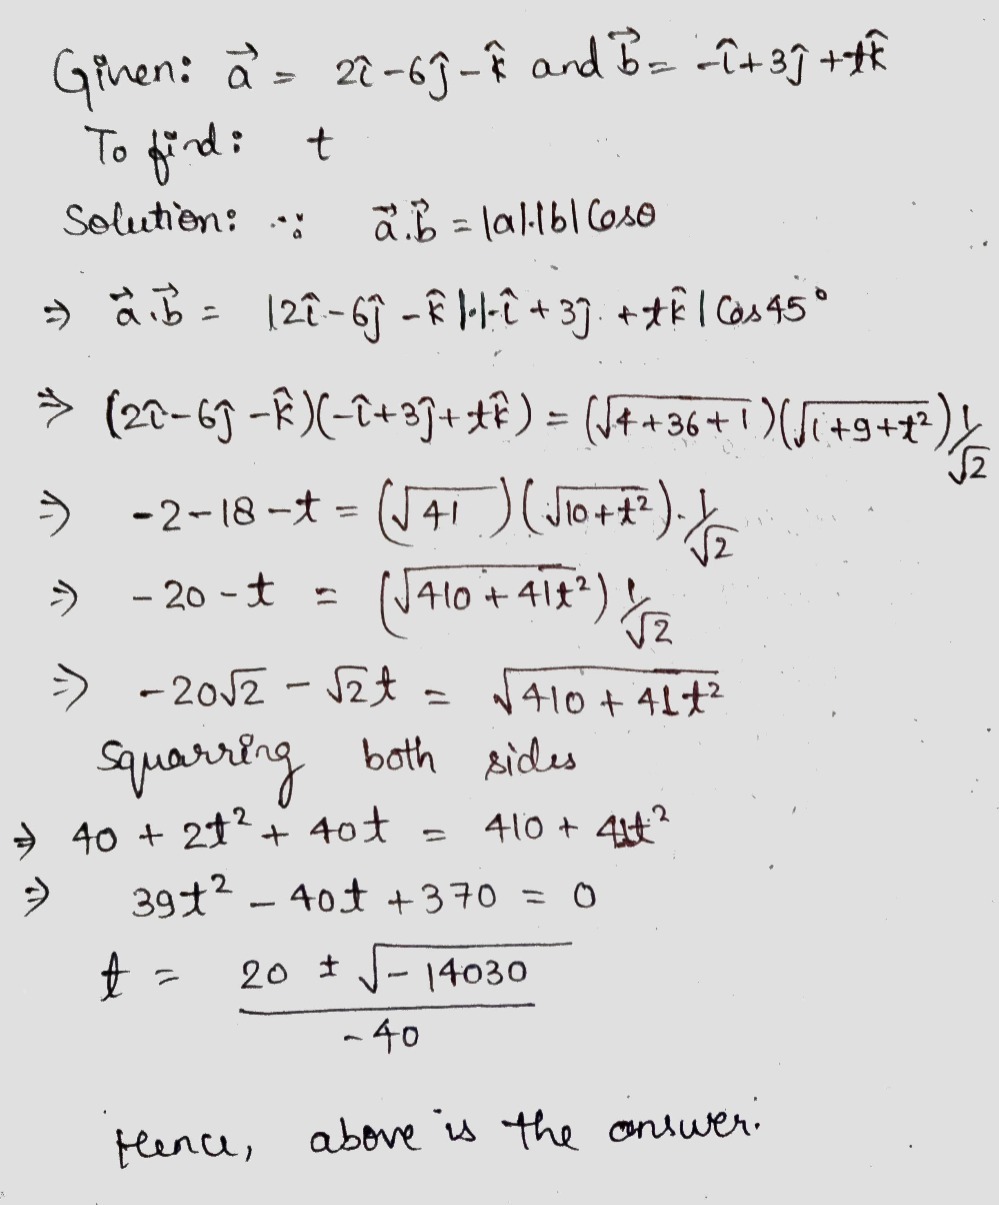 Given: a⃗ = 2î-6ĵ-k̂ and b⃗ = -î+3ĵ+tk̂
To find: t
Solution: ∵ a⃗.b⃗ = |a|.|b| Cosθ
⇒ a⃗.b⃗ = |2î-6ĵ-k̂|.|-î+3ĵ+tk̂| Cos45°
⇒ (2î-6ĵ-k̂)(-î+3ĵ+tk̂) = (√4+36+1)(√1+9+t²) 1/√2
⇒ -2-18-t = (√41)(√10+t²).1/√2
⇒ -20-t = (√410+41t²) 1/√2
⇒ -20√2 - √2t = √410+41t²
Squarring both sides
⇒ 40 + 2t² + 40t = 410 + 41t²
⇒ 39t² - 40t + 370 = 0
t = 20 ± √-14030 / -40
Hence, above is the answer.